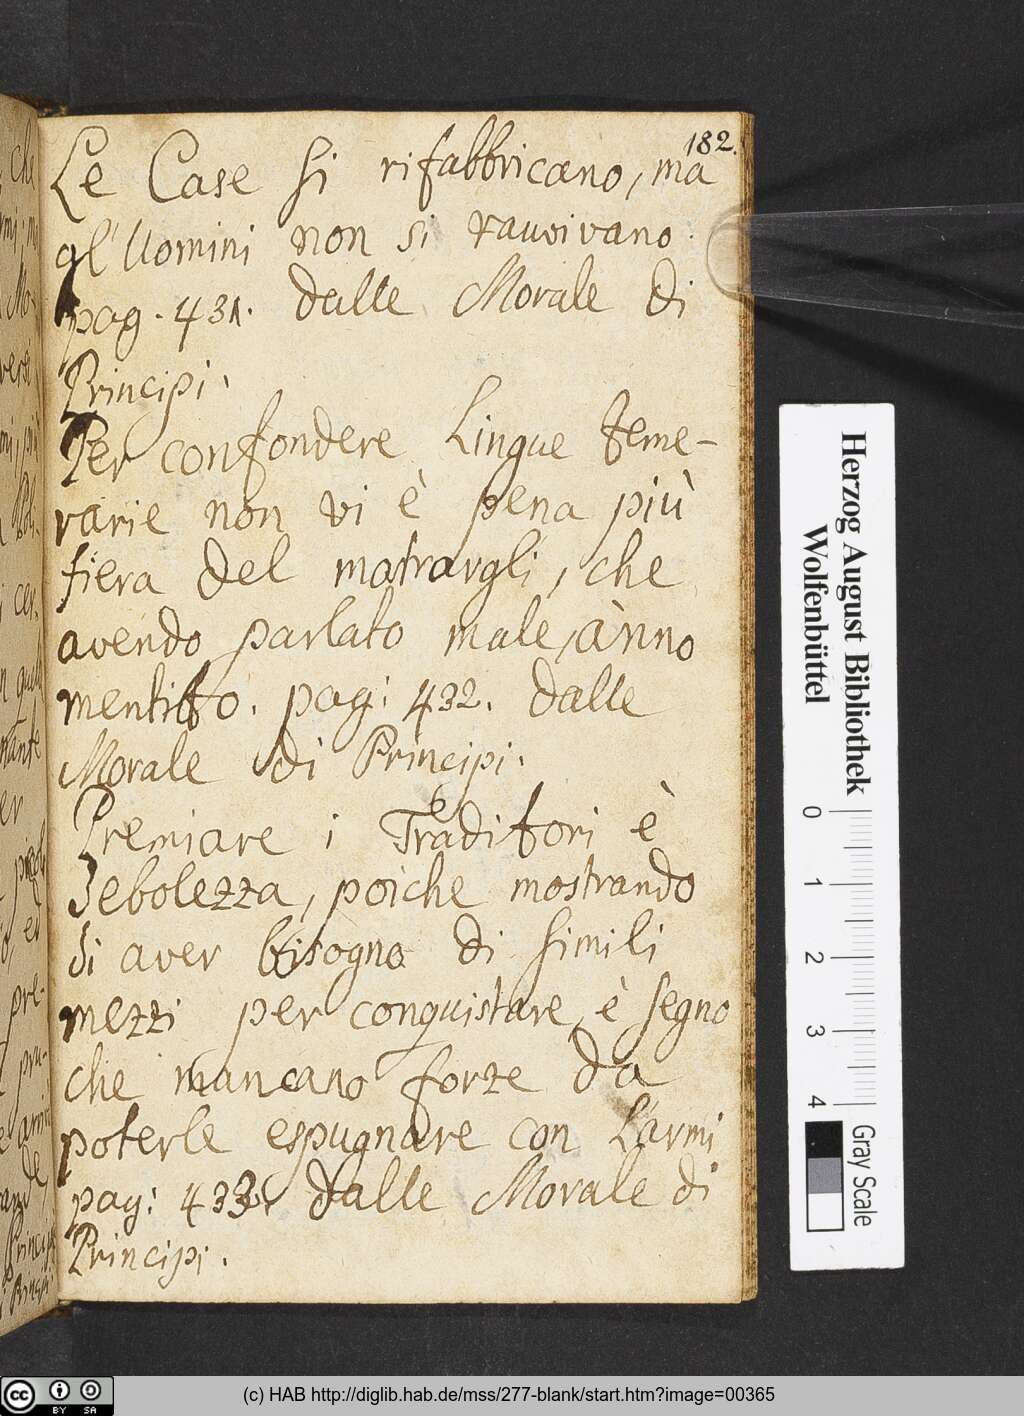 182.
Le Case si rifabbricano, ma
gl' Uomini non si ravvivano.
pag. 431. dalle Morale di
Principi.
Per confondere Lingue teme-
rarie non vi è pena più
fiera del mostrargli, che
avendo parlato male, ànno
mentitto. pag: 432. dalle
Morale di Principi.
Premiare i Traditori è
debolezza, poiche mostrando
di aver bisogno di simili
mezzi per conquistare, è segno
che mancano forze da
poterle espugnare con L'armi
pag: 433. dalle Morale di
Principi.
Herzog August Bibliothek
Wolfenbüttel
0 1 2 3 4
Gray Scale
(c) HAB http://diglib.hab.de/mss/277-blank/start.htm?image=00365
cc BY SA